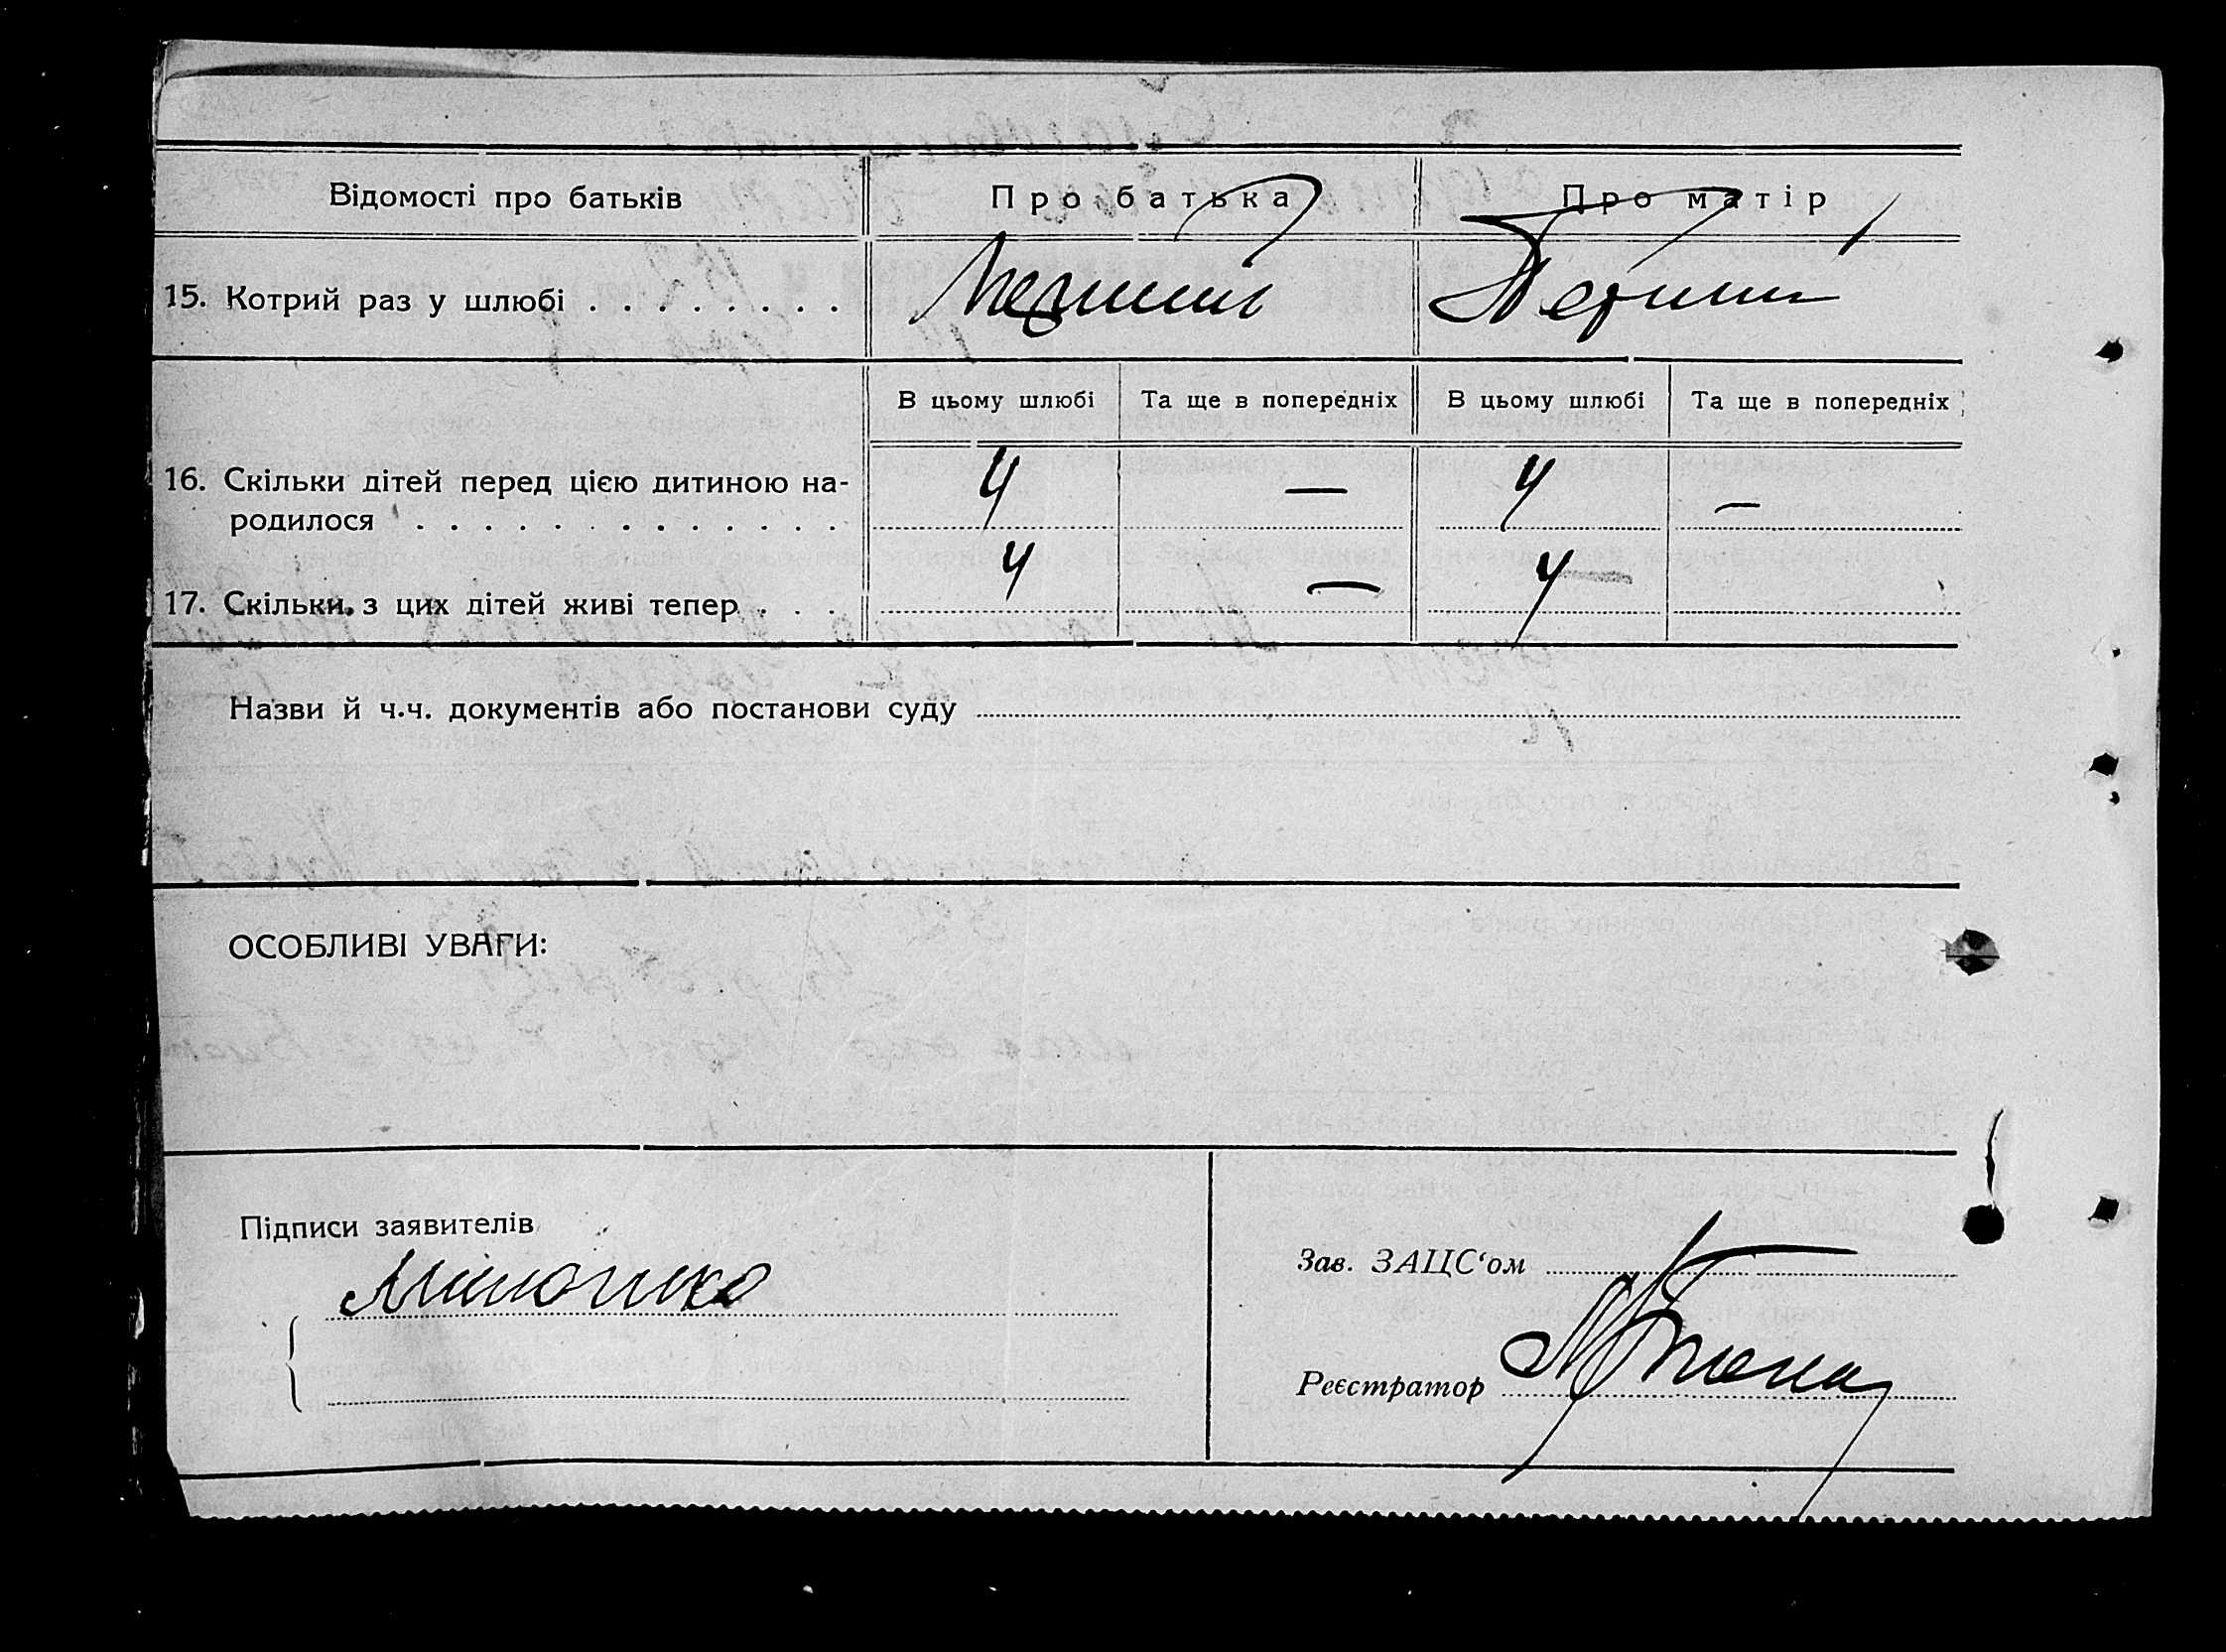 Відомості про батьків Про батька Про матір
15. Котрий раз у шлюбі . . . . . . . . Перший Перший
В цьому шлюбі Та ще в попередніх В цьому шлюбі Та ще в попередніх
16. Скільки дітей перед цією дитиною на-
родилося . . . . . . . . . . . . . 4 — 4 —
17. Скільки з цих дітей живі тепер . . . 4 — 4
Назви й ч.ч. документів або постанови суду
ОСОБЛИВІ УВАГИ:
Підписи заявителів
Зав. ЗАЦС‘ом
Реєстратор